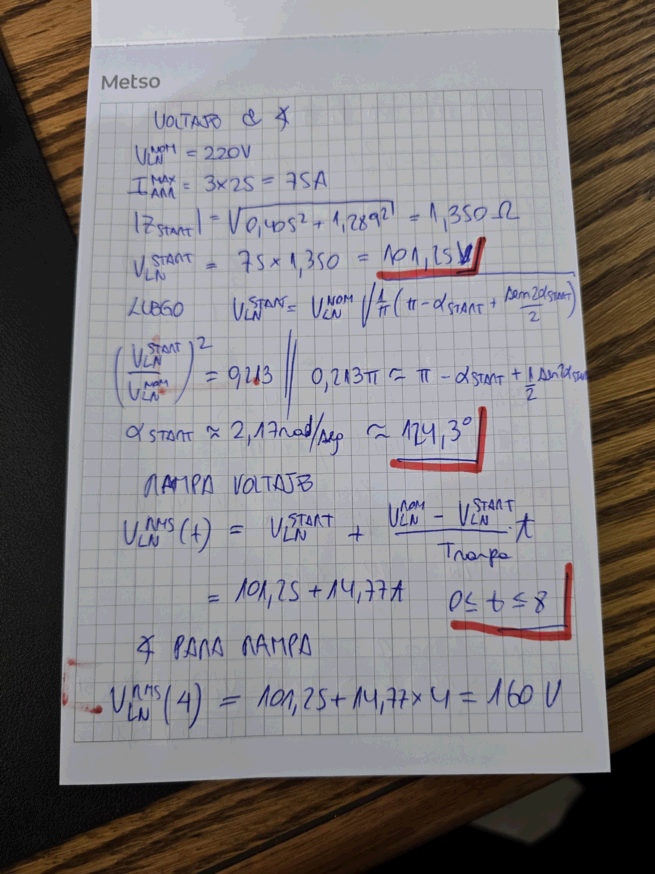 Metso
VOLTAJE & ∢
V_LN^NOM = 220V
I_ARR^MAX = 3×25 = 75A
|Z_START| = √(0,405² + 1,289²) = 1,350 Ω
V_LN^START = 75 × 1,350 = 101,25V
LUEGO V_LN^START = V_LN^NOM √(1/π (π - α_START + sen2α_START/2))
(V_LN^START / V_LN^NOM)² = 0,213 || 0,213π ≈ π - α_START + 1/2 sen2α_START
α_START ≈ 2,17rad/seg ≈ 124,3°
RAMPA VOLTAJE
V_LN^RMS(t) = V_LN^START + (V_LN^NOM - V_LN^START)/T_rampa · t
= 101,25 + 14,77t 0 ≤ t ≤ 8
∢ PARA RAMPA
V_LN^RMS(4) = 101,25 + 14,77 × 4 = 160 V